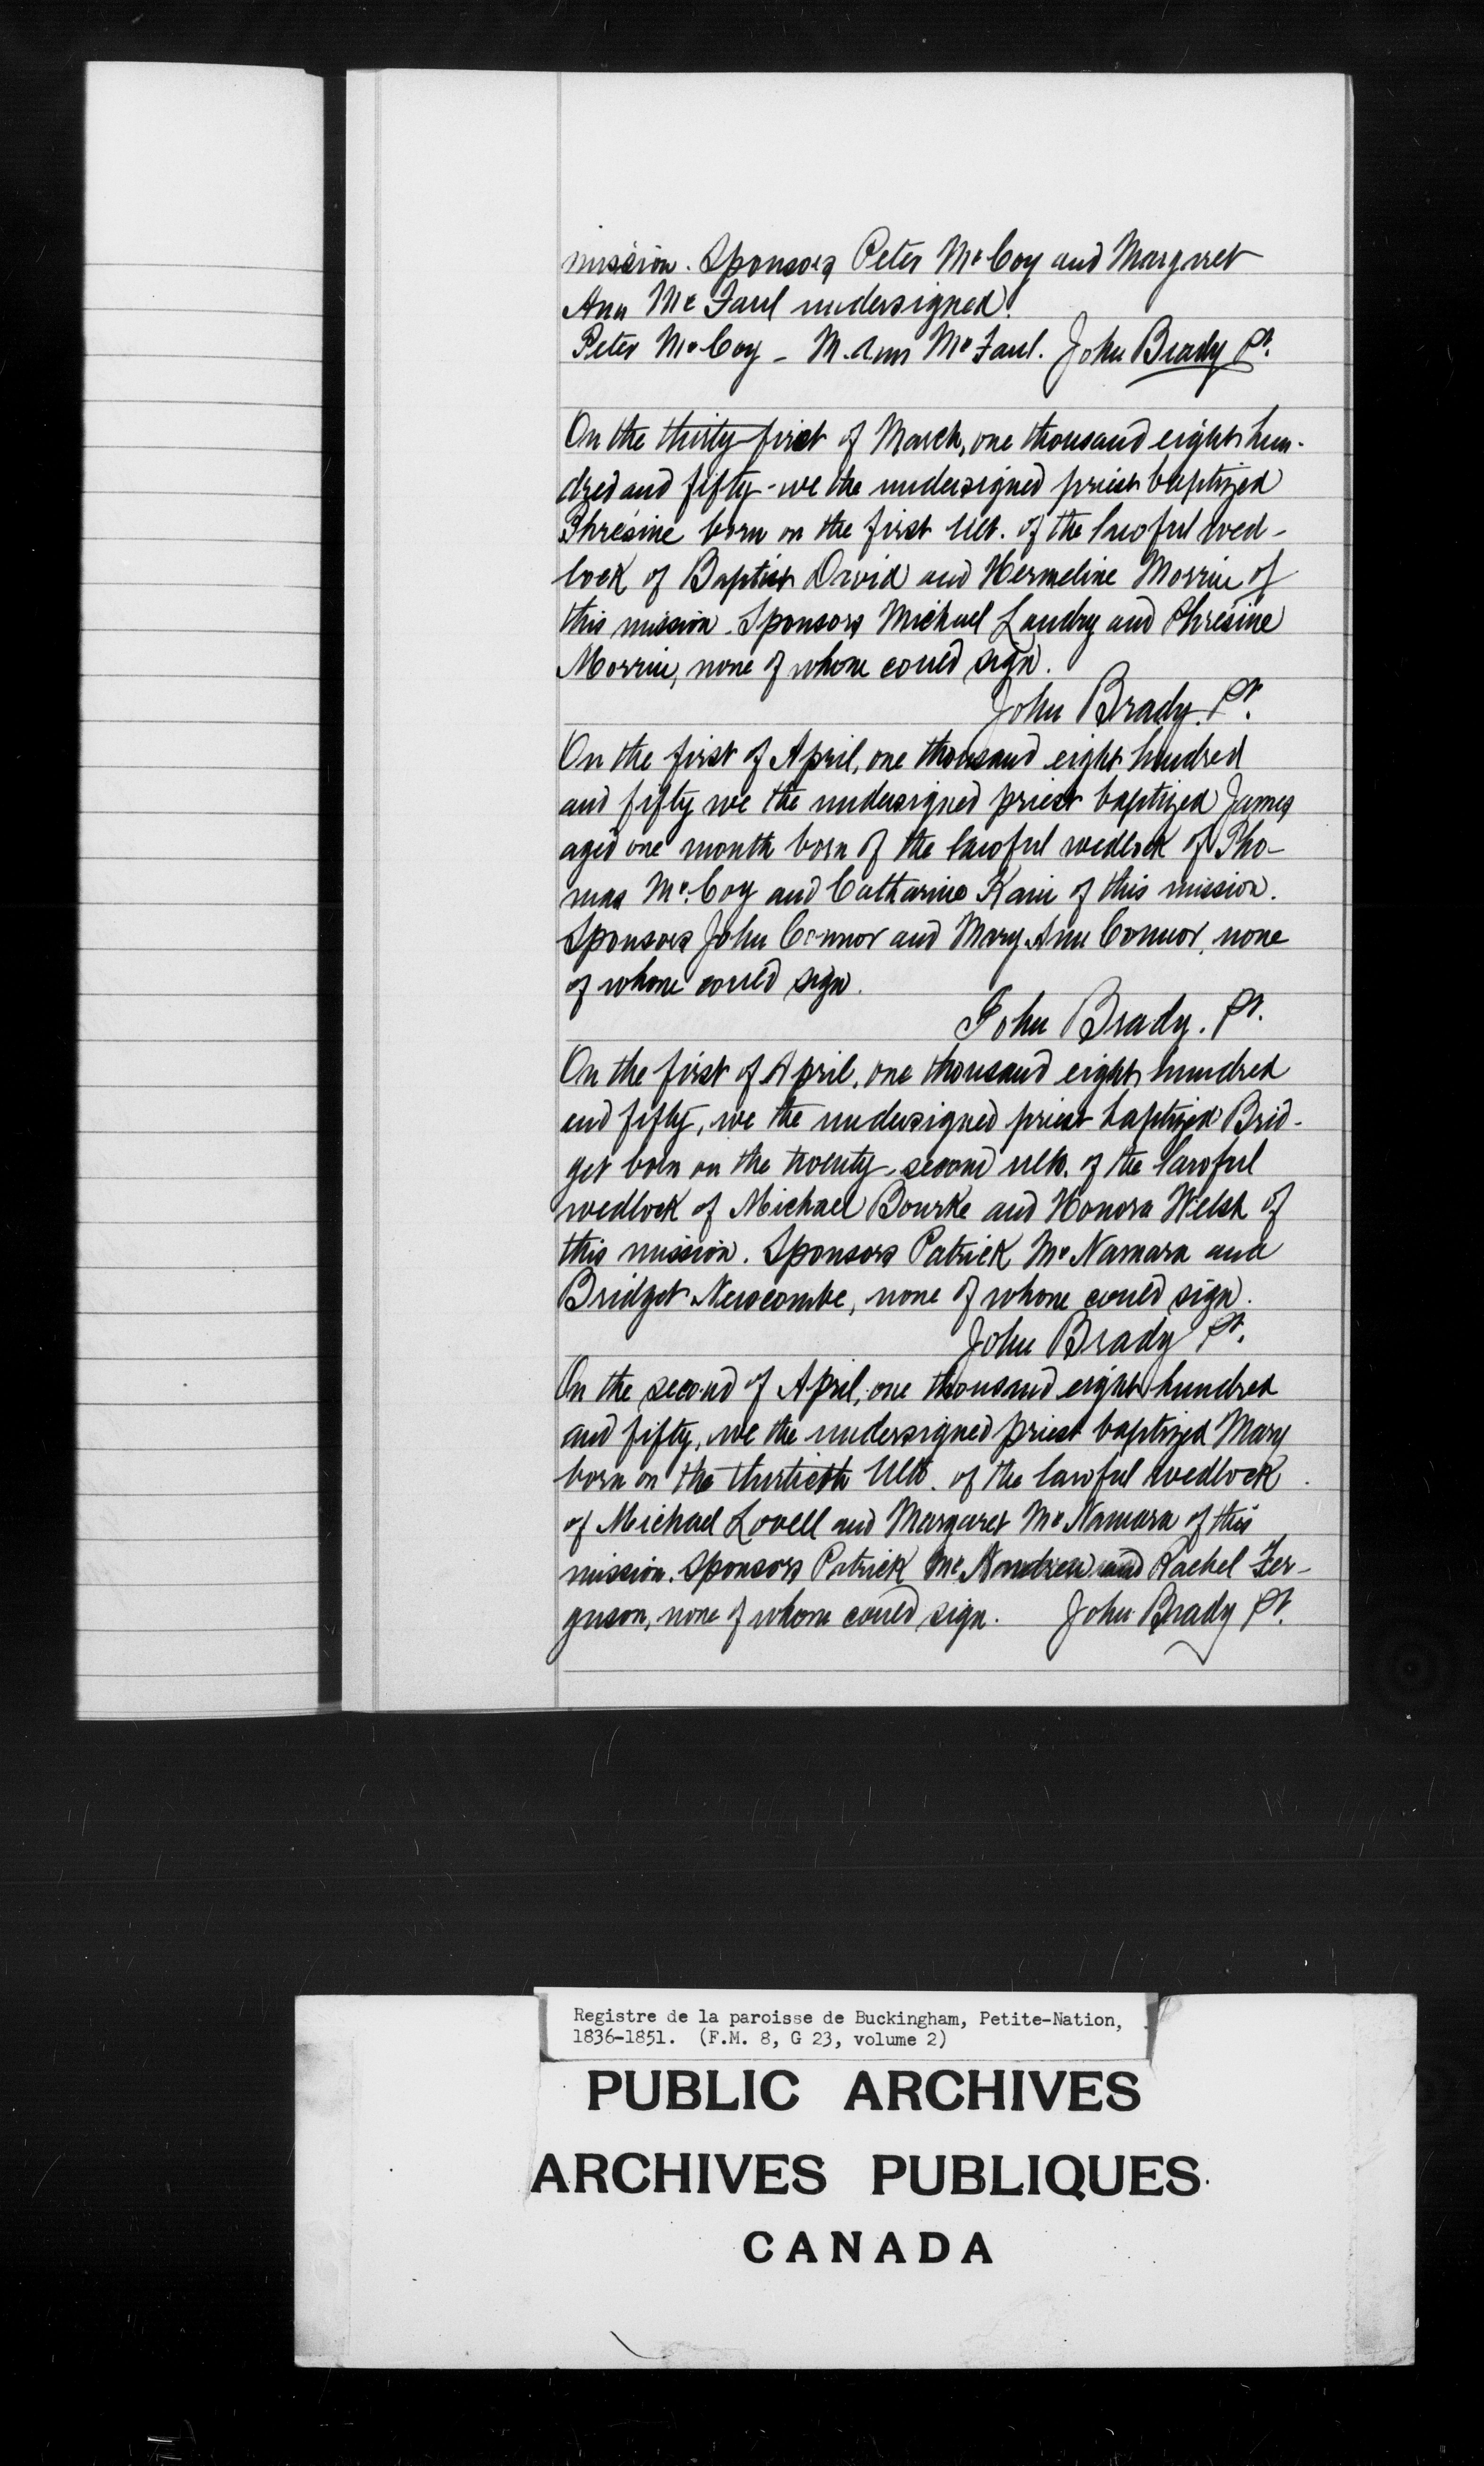 mission. Sponsors Peter Mc Coy and Margaret
Ann Mc Faul undersigned.
Peter Mc Coy _ M. Ann Mc Faul. John Brady Pt.
On the thirty-first of March, one thousand eight hun-
dred and fifty - we the undersigned priest baptized
Thrésine born on the first Ult. of the lawful wed-
lock of Baptist David and Hermeline Morrin of
this mission. Sponsors Michael Landry and Thrésine
Morrin, none of whom could sign.
John Brady. Pt.
On the first of April, one thousand eight hundred
and fifty we the undersigned priest baptized James
aged one month born of the lawful wedlock of Tho-
mas Mc. Coy and Catharine Kain of this mission.
Sponsors John Connor and Mary Ann Connor, none
of whom could sign.
John Brady. Pt.
On the first of April, one thousand eight hundred
and fifty, we the undersigned priest baptized Brid-
get born on the twenty-second ulto. of the lawful
wedlock of Michael Bourke and Honora Welsh of
this mission. Sponsors Patrick Mc Namara and
Bridget Newcombe, none of whom could sign.
John Brady Pt.
On the second of April, one thousand eight hundred
and fifty, we the undersigned priest baptized Mary
born on the thirtieth Ulto. of the lawful wedlock
of Michael Lovell and Margaret Mc Namara of this
mission. Sponsors Patrick Mc Nandrew and Rachel Fer-
guson, none of whom could sign. John Brady Pt.
Registre de la paroisse de Buckingham, Petite-Nation,
1836-1851. (F.M. 8, G 23, volume 2)
PUBLIC ARCHIVES
ARCHIVES PUBLIQUES
CANADA